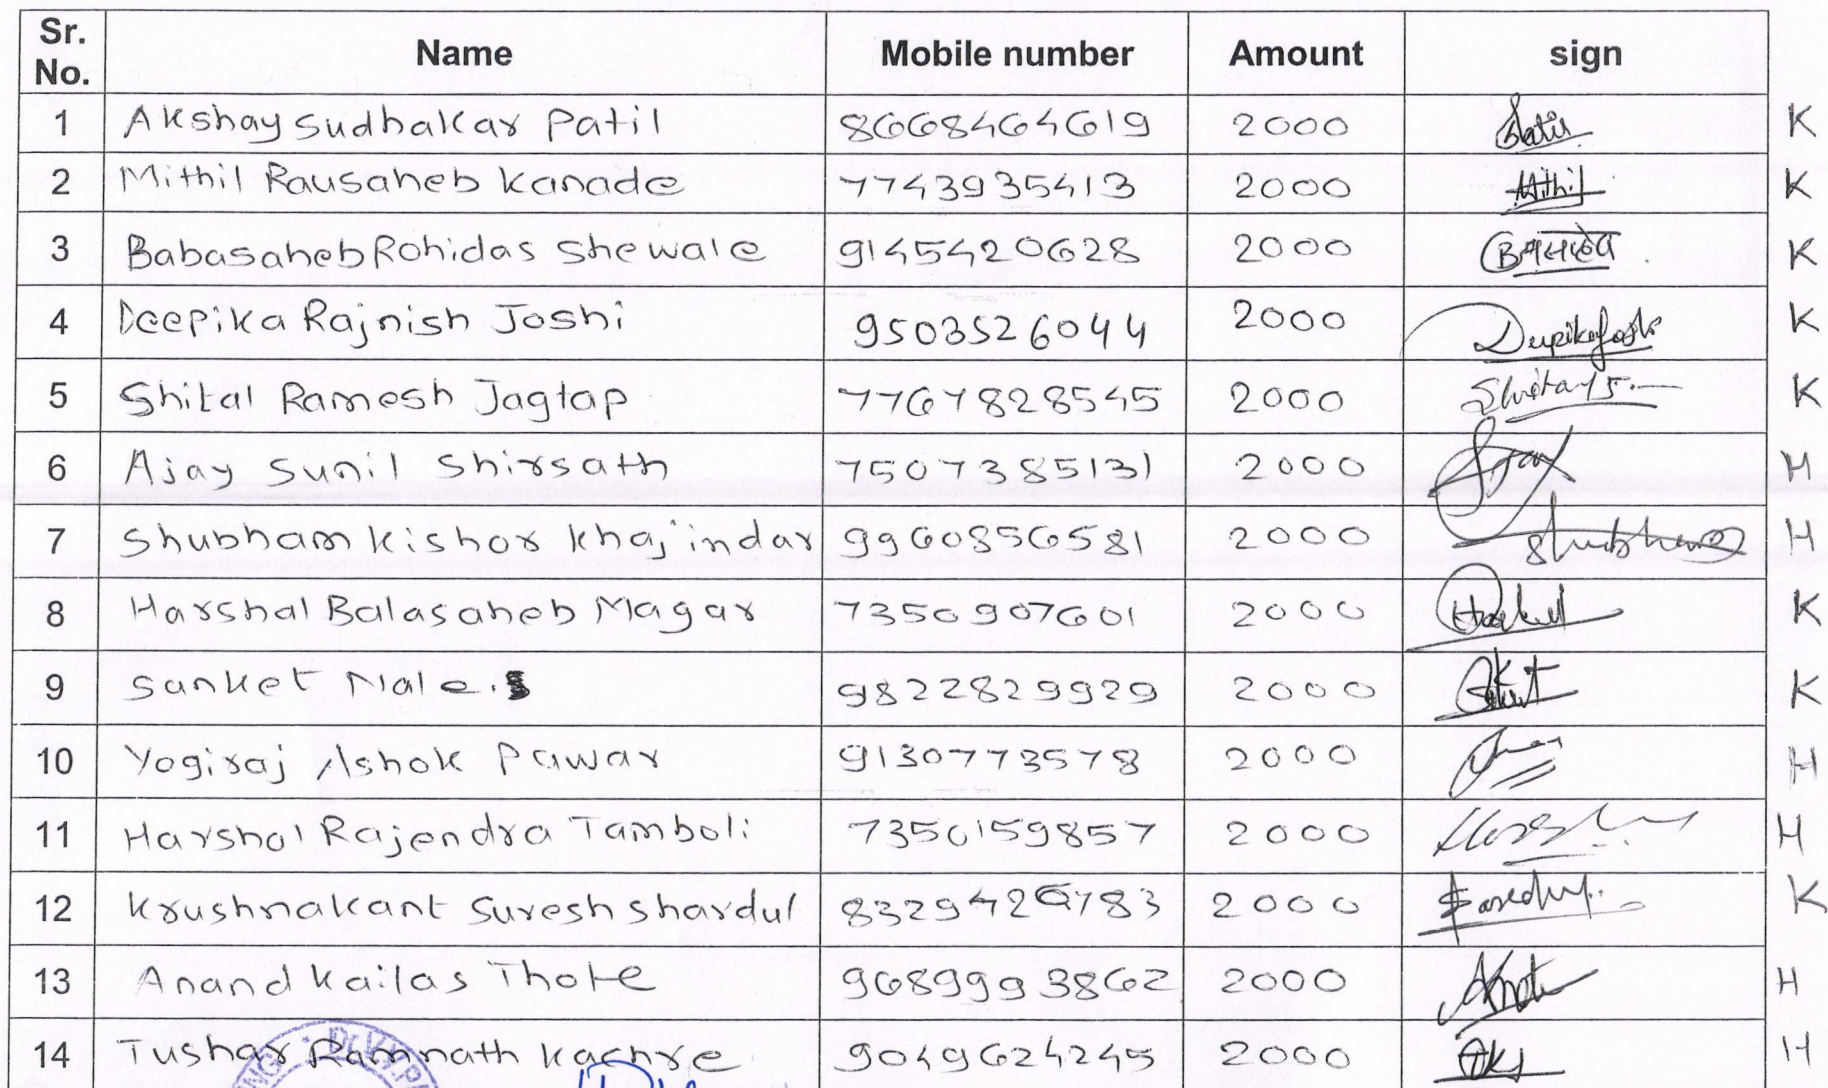 Sr. No. Name Mobile number Amount sign
1 Akshay Sudhakar Patil 8668464619 2000 K
2 Mithil Rausaheb Kanade 7743935413 2000 Mithil K
3 Babasaheb Rohidas Shewale 9145420628 2000 K
4 Deepika Rajnish Joshi 9503526044 2000 DeepikaJoshi K
5 Shital Ramesh Jagtap 7767828545 2000 K
6 Ajay Sunil Shirsath 7507385131 2000 H
7 Shubham Kishor Khajindar 9960856581 2000 Shubham H
8 Harshal Balasaheb Magar 7350907601 2000 K
9 Sanket Male. 9822829929 2000 K
10 Yogiraj Ashok Pawar 9130773578 2000 H
11 Harshal Rajendra Tamboli 7350159857 2000 H
12 Krushnakant Suresh Shardul 8329426783 2000 K
13 Anand Kailas Thote 9689993862 2000 H
14 Tushar Ramnath Kachre 9049624245 2000 H